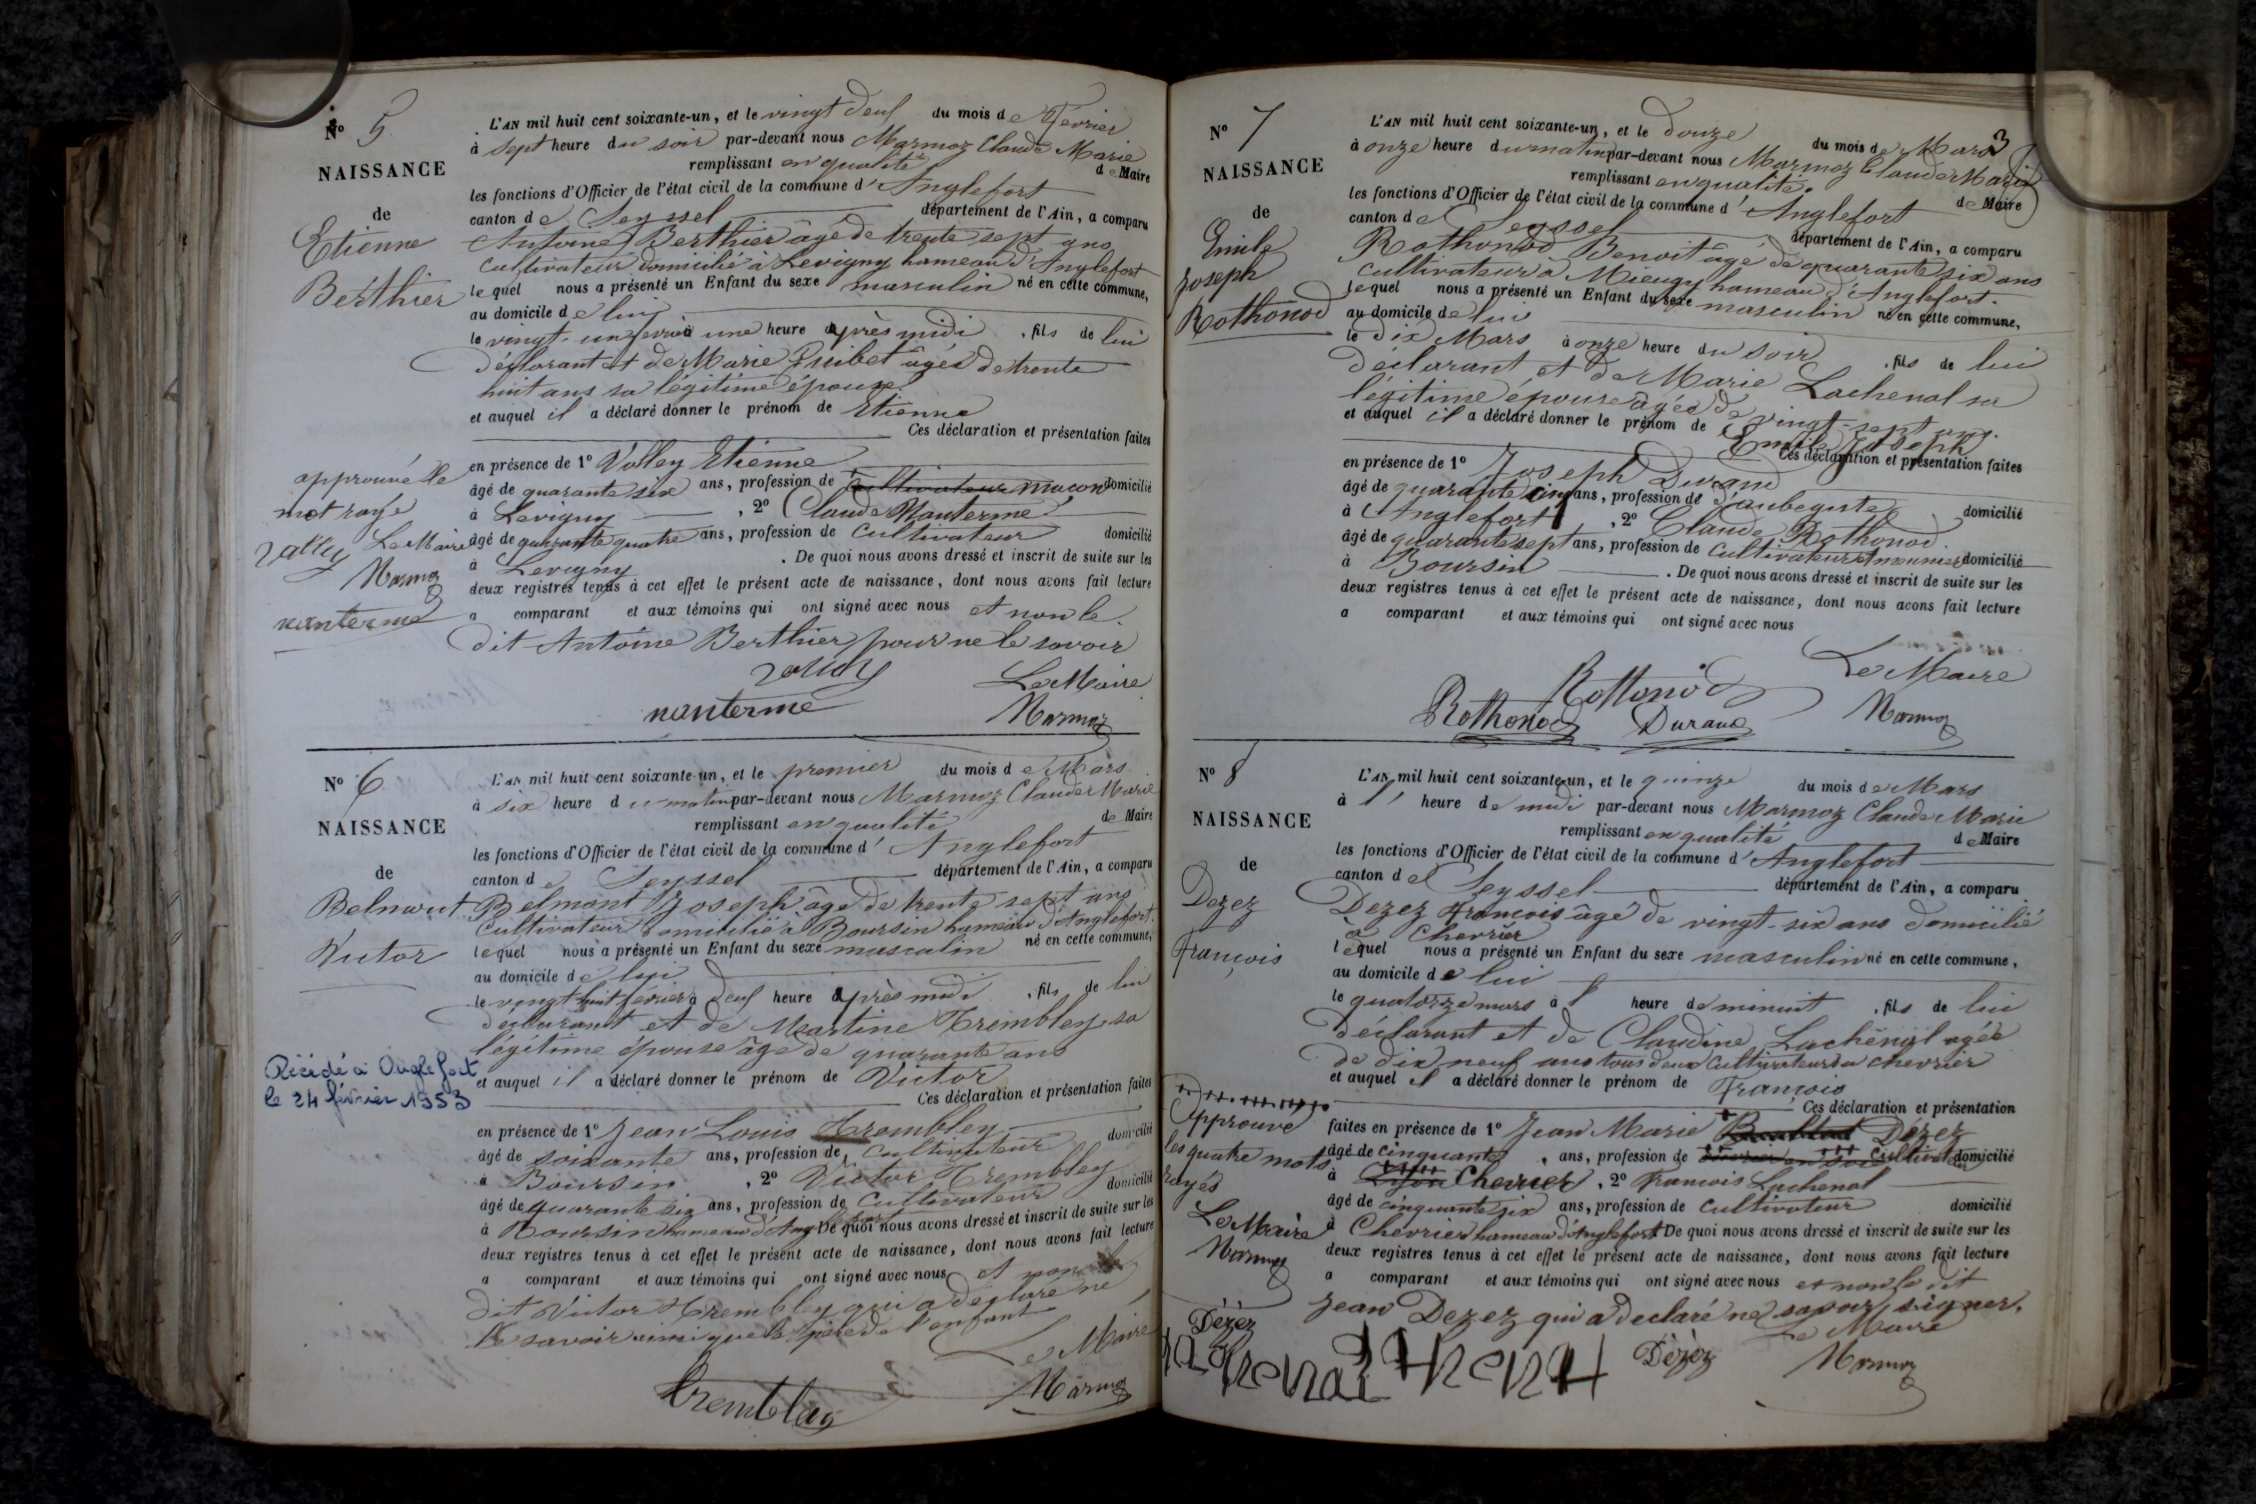 N° 5
NAISSANCE
de
Etienne
Berthier
L'AN mil huit cent soixante-un, et le vingt deux du mois de Février
à sept heure du soir par-devant nous Marmoz Claude Marie
remplissant en qualité de Maire
les fonctions d'Officier de l'état civil de la commune d'Anglefort
canton de Seyssel département de l'Ain, a comparu
Antoine Berthier âgé de trente sept ans
cultivateur domicilié à Levigny hameau d'Anglefort
lequel nous a présenté un Enfant du sexe masculin né en cette commune,
au domicile de lui
le vingt-un fevrier à une heure après midi , fils de lui
déclarant et de Marie Quibet âgée de trente
huit ans sa légitime épouse
et auquel il a déclaré donner le prénom de Etienne
Ces déclaration et présentation faites
en présence de 1° Volley Etienne
âgé de quarante six ans, profession de cultivateur maçon domicilié
à Levigny , 2° Claude Nanterme
âgé de quarante quatre ans, profession de cultivateur domicilié
à Levigny . De quoi nous avons dressé et inscrit de suite sur les
deux registres tenus à cet effet le présent acte de naissance, dont nous avons fait lecture
a comparant et aux témoins qui ont signé avec nous et non le
dit Antoine Berthier pour ne le savoir
approuvé le
mot rayé
Le Maire
Marmoz
nanterme
Le Maire
nanterme
Marmoz
N° 6
NAISSANCE
de
Belmont
Victor
L'AN mil huit cent soixante-un, et le premier du mois de Mars
à six heure du matin par-devant nous Marmoz Claude Marie
remplissant en qualité de Maire
les fonctions d'Officier de l'état civil de la commune d'Anglefort
canton de Seyssel département de l'Ain, a comparu
Belmont Joseph âgé de trente sept ans
cultivateur domicilié à Boursin hameau d'Anglefort.
lequel nous a présenté un Enfant du sexe masculin né en cette commune,
au domicile de lui
le vingt huit février à deux heure après midi , fils de lui
déclarant et de Martine Trembley sa
légitime épouse âgé de quarante ans
et auquel il a déclaré donner le prénom de Victor
Ces déclaration et présentation faites
en présence de 1° Jean Louis Trembley domicilié
âgé de soixante ans, profession de cultivateur
à Boursin , 2° Victor Trembley domicilié
âgé de quarante six ans, profession de cultivateur
à Boursin hameau d'Anglefort De quoi nous avons dressé et inscrit de suite sur les
deux registres tenus à cet effet le présent acte de naissance, dont nous avons fait lecture
a comparant et aux témoins qui ont signé avec nous et non le
dit Victor Trembley qui a déclaré ne
le savoir ainsi que le père de l'enfant
Le Maire
Marmoz
Tremblay
Décédé à Anglefort
le 24 février 1953
N° 7
3
NAISSANCE
de
Emile
Joseph
Rothonod
L'AN mil huit cent soixante-un, et le douze du mois de Mars
à onze heure du matin par-devant nous Marmoz Claude Marie
remplissant en qualité de Maire
les fonctions d'Officier de l'état civil de la commune d'Anglefort
canton de Seyssel département de l'Ain, a comparu
Rothonod Benoit âgé de quarante six ans
cultivateur à Mieugy hameau d'Anglefort.
lequel nous a présenté un Enfant du sexe masculin né en cette commune,
au domicile de lui
le dix Mars à onze heure du soir , fils de lui
déclarant et de Marie Lachenal sa
légitime épouse âgée de vingt-sept ans.
et auquel il a déclaré donner le prénom de Emile Joseph
Ces déclaration et présentation faites
en présence de 1° Joseph Durand
âgé de quarante cinq ans, profession de d'aubegiste domicilié
à Anglefort , 2° Claude Rothonod
âgé de quarante sept ans, profession de cultivateur et meunier domicilié
à Boursin . De quoi nous avons dressé et inscrit de suite sur les
deux registres tenus à cet effet le présent acte de naissance, dont nous avons fait lecture
a comparant et aux témoins qui ont signé avec nous
Le Maire
Rottonod
Rothonod Durand Marmoz
N° 8
NAISSANCE
de
Dezez
françois
L'AN mil huit cent soixante-un, et le quinze du mois de Mars
à l' heure de midi par-devant nous Marmoz Claude Marie
remplissant en qualité de Maire
les fonctions d'Officier de l'état civil de la commune d'Anglefort
canton de Seyssel département de l'Ain, a comparu
Dezez françois âgé de vingt-six ans domicilié
à Chevrier
lequel nous a présenté un Enfant du sexe masculin né en cette commune,
au domicile de lui
le quatorze mars à l' heure de minuit , fils de lui
déclarant et de Claudine Lachenal agée
de dix neuf ans tous deux cultivateurs a chevrier
et auquel il a déclaré donner le prénom de françois
Ces déclaration et présentation
faites en présence de 1° Jean Marie Dezez
âgé de cinquante , ans, profession de cultivateur domicilié
à Lyon Chevrier , 2° françois Lachenal
âgé de cinquante six ans, profession de cultivateur domicilié
à Chevrier hameau d'Anglefort De quoi nous avons dressé et inscrit de suite sur les
deux registres tenus à cet effet le présent acte de naissance, dont nous avons fait lecture
a comparant et aux témoins qui ont signé avec nous et non le dit
Jean Dezez qui a declaré ne savoir signer.
Approuvé
les quatre mots
rayés
Le Maire
Marmoz
Dézez
Le Maire
Dézèz
Marmoz